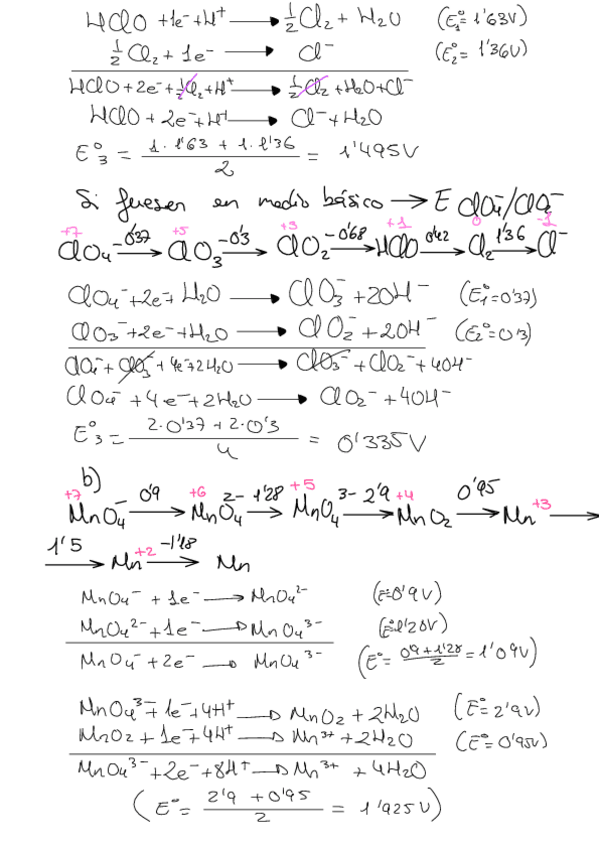 HClO + 1e⁻ + H⁺ → ½Cl₂ + H₂O (E₁°= 1'63V)
½Cl₂ + 1e⁻ → Cl⁻ (E₂°= 1'36V)
HClO + 2e⁻ + ½Cl₂ + H⁺ → ½Cl₂ + H₂O + Cl⁻
HClO + 2e⁻ + H⁺ → Cl⁻ + H₂O
E₃° = (1·1'63 + 1·1'36)/2 = 1'495V
Si fuesen en medio básico → E ClO₄⁻/ClO₂⁻
+7 +5 +3 +1 0 -1
ClO₄⁻ 0'37 → ClO₃⁻ 0'3 → ClO₂⁻ 0'68 → HClO 0'42 → Cl₂ 1'36 → Cl⁻
ClO₄⁻ + 2e⁻ + H₂O → ClO₃⁻ + 2OH⁻ (E₁°=0'37)
ClO₃⁻ + 2e⁻ + H₂O → ClO₂⁻ + 2OH⁻ (E₂°=0'3)
ClO₄⁻ + ClO₃⁻ + 4e⁻ + 2H₂O → ClO₃⁻ + ClO₂⁻ + 4OH⁻
ClO₄⁻ + 4e⁻ + 2H₂O → ClO₂⁻ + 4OH⁻
E₃° = (2·0'37 + 2·0'3)/4 = 0'335V
b)
+7 +6 +5 +4 +3
MnO₄⁻ 0'9 → MnO₄²⁻ 1'28 → MnO₄³⁻ 2'9 → MnO₂ 0'95 → Mn →
1'5 → Mn +2 -1'18 → Mn
MnO₄⁻ + 1e⁻ → MnO₄²⁻ (E°=0'9V)
MnO₄²⁻ + 1e⁻ → MnO₄³⁻ (E°=1'28V)
MnO₄⁻ + 2e⁻ → MnO₄³⁻ (E°= (0'9+1'28)/2 = 1'09V)
MnO₄³⁻ + 1e⁻ + 4H⁺ → MnO₂ + 2H₂O (E°=2'9V)
MnO₂ + 1e⁻ + 4H⁺ → Mn³⁺ + 2H₂O (E°=0'95V)
MnO₄³⁻ + 2e⁻ + 8H⁺ → Mn³⁺ + 4H₂O
(E°= (2'9 + 0'95)/2 = 1'925V)